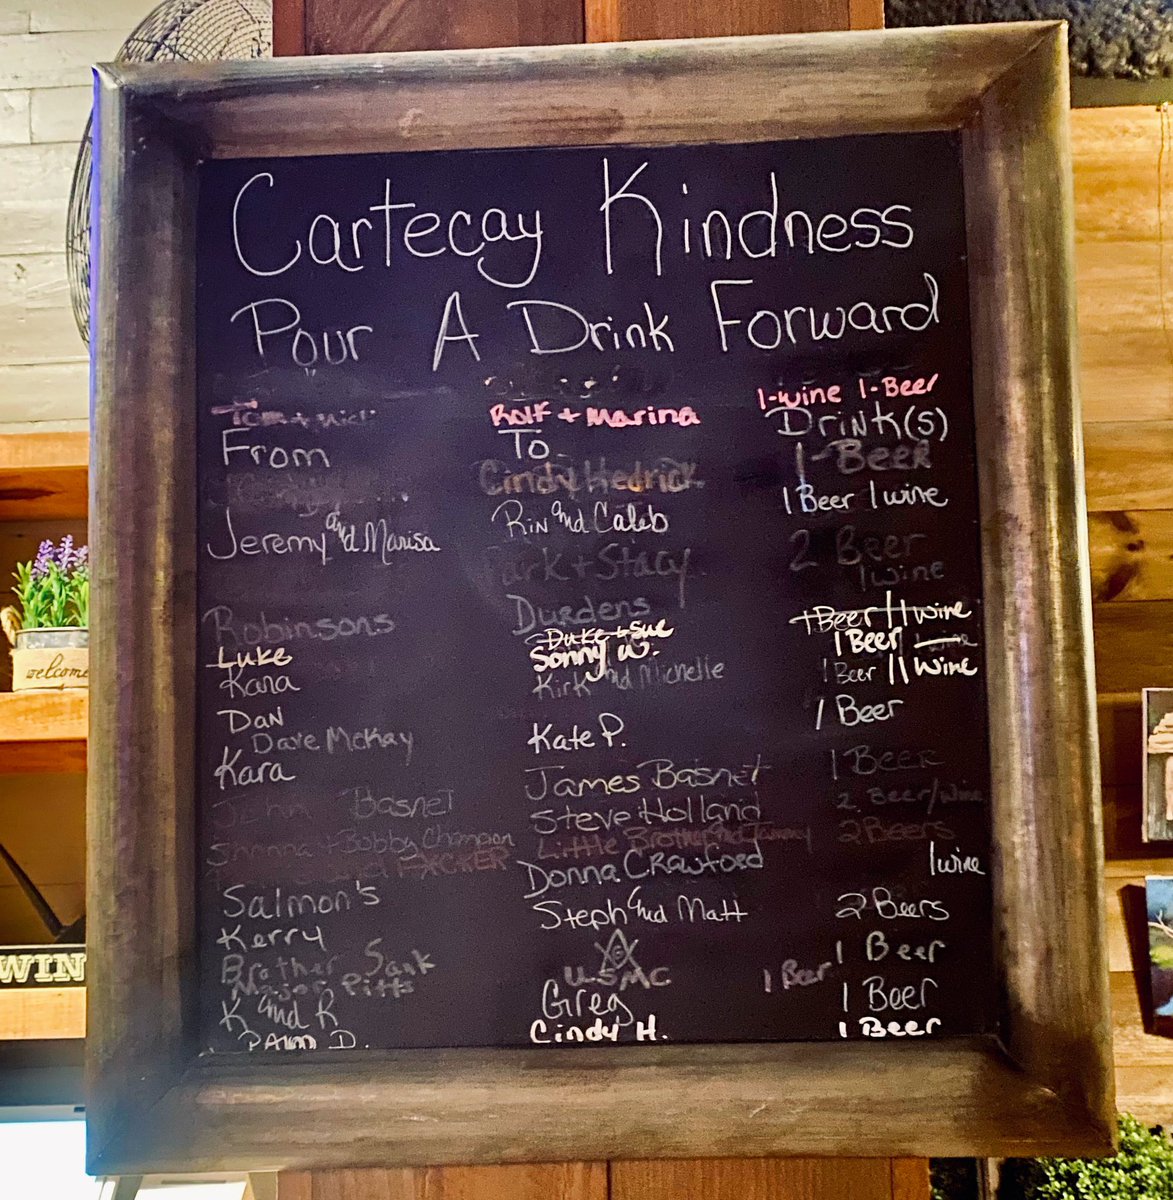 Cartecay Kindness
Pour A Drink Forward
Rolf + Marina 1-wine 1-Beer
From To Drink(s)
Cindy Hedrick 1-Beer
Jeremy and Marisa Rin and Caleb 1 Beer 1 wine
+ Stacy 2 Beer
1 wine
Robinsons Durdens 1 Beer / 1 wine
Luke Duke + Sue 1 Beer wine
Sonny W.
Kara Kirk and Michelle 1 Beer / 1 wine
Dan Kate P. 1 Beer
Dave McKay
Kara James Basnet 1 Beer
John Basnet Steve Holland 2 Beer/Wine
+ Bobby Champion Little Brother and Tammy 2 Beers
Donna Crawford 1 wine
Salmon's Steph and Matt 2 Beers
Kerry G 1 Beer
Brother Sask USMC 1 Beer
Major Pitts
K and R Greg 1 Beer
Pam D. Cindy H. 1 Beer
welcome
WIN